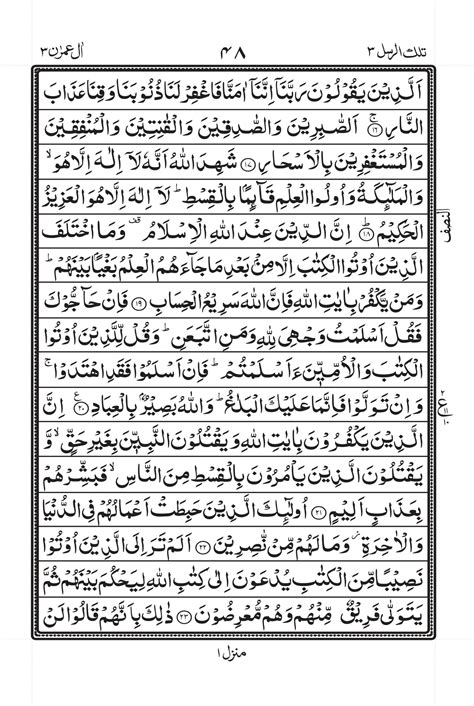 تلك الرسل ٣ ٤٨ اٰل عمرٰن ٣
اَلَّذِيْنَ يَقُوْلُوْنَ رَبَّنَاۤ اِنَّنَاۤ اٰمَنَّا فَاغْفِرْ لَنَا ذُنُوْبَنَا وَقِنَا عَذَابَ
النَّارِ ۚ ﴿١٦﴾ اَلصّٰبِرِيْنَ وَالصّٰدِقِيْنَ وَالْقٰنِتِيْنَ وَالْمُنْفِقِيْنَ
وَالْمُسْتَغْفِرِيْنَ بِالْاَسْحَارِ ﴿١٧﴾ شَهِدَ اللّٰهُ اَنَّهٗ لَاۤ اِلٰهَ اِلَّا هُوَ ۙ
وَالْمَلٰٓئِكَةُ وَاُولُوا الْعِلْمِ قَآئِمًۢا بِالْقِسْطِ ؕ لَاۤ اِلٰهَ اِلَّا هُوَ الْعَزِيْزُ
الْحَكِيْمُ ؕ ﴿١٨﴾ اِنَّ الدِّيْنَ عِنْدَ اللّٰهِ الْاِسْلَامُ ۫ وَمَا اخْتَلَفَ
النصف
الَّذِيْنَ اُوْتُوا الْكِتٰبَ اِلَّا مِنْۢ بَعْدِ مَا جَآءَهُمُ الْعِلْمُ بَغْيًۢا بَيْنَهُمْ ؕ
وَمَنْ يَّكْفُرْ بِاٰيٰتِ اللّٰهِ فَاِنَّ اللّٰهَ سَرِيْعُ الْحِسَابِ ﴿١٩﴾ فَاِنْ حَآجُّوْكَ
فَقُلْ اَسْلَمْتُ وَجْهِيَ لِلّٰهِ وَمَنِ اتَّبَعَنِ ؕ وَقُلْ لِّلَّذِيْنَ اُوْتُوا
الْكِتٰبَ وَالْاُمِّيّٖنَ ءَاَسْلَمْتُمْ ؕ فَاِنْ اَسْلَمُوْا فَقَدِ اهْتَدَوْا ۚ
وَاِنْ تَوَلَّوْا فَاِنَّمَا عَلَيْكَ الْبَلٰغُ ؕ وَاللّٰهُ بَصِيْرٌۢ بِالْعِبَادِ ﴿٢٠﴾ اِنَّ
الَّذِيْنَ يَكْفُرُوْنَ بِاٰيٰتِ اللّٰهِ وَيَقْتُلُوْنَ النَّبِيّٖنَ بِغَيْرِ حَقٍّ ۙ وَّ
يَقْتُلُوْنَ الَّذِيْنَ يَاْمُرُوْنَ بِالْقِسْطِ مِنَ النَّاسِ ۙ فَبَشِّرْهُمْ
بِعَذَابٍ اَلِيْمٍ ﴿٢١﴾ اُولٰٓئِكَ الَّذِيْنَ حَبِطَتْ اَعْمَالُهُمْ فِي الدُّنْيَا
وَالْاٰخِرَةِ ۫ وَمَا لَهُمْ مِّنْ نّٰصِرِيْنَ ﴿٢٢﴾ اَلَمْ تَرَ اِلَى الَّذِيْنَ اُوْتُوْا
نَصِيْبًا مِّنَ الْكِتٰبِ يُدْعَوْنَ اِلٰى كِتٰبِ اللّٰهِ لِيَحْكُمَ بَيْنَهُمْ ثُمَّ
يَتَوَلّٰى فَرِيْقٌ مِّنْهُمْ وَهُمْ مُّعْرِضُوْنَ ﴿٢٣﴾ ذٰلِكَ بِاَنَّهُمْ قَالُوْا لَنْ
منزل ١